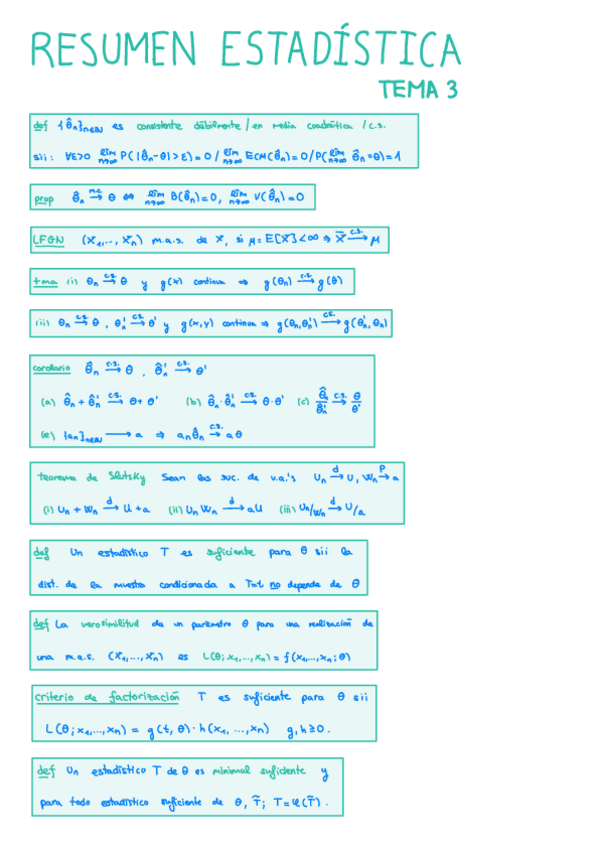 RESUMEN ESTADÍSTICA
TEMA 3
def {θ̂n}n∈ℕ es consistente débilmente / en media cuadrática / c.s.
sii: ∀ε>0 lím n→∞ P(|θ̂n-θ|>ε)=0 / lím n→∞ ECM(θ̂n)=0 / P(lím n→∞ θ̂n=θ)=1
prop θ̂n →m.c. θ ⇔ lím n→∞ B(θ̂n)=0, lím n→∞ V(θ̂n)=0
LFGN (X1,..., Xn) m.a.s. de X, si μ=E[X]<∞ ⇒ X̄ →c.s. μ
tma (i) θn →c.s. θ y g(x) continua ⇒ g(θn) →c.s. g(θ)
(ii) θn →c.s. θ , θn' →c.s. θ' y g(x,y) continua ⇒ g(θn,θn') →c.s. g(θn', θn)
corolario θ̂n →c.s. θ , θ̂n' →c.s. θ'
(a) θ̂n + θ̂n' →c.s. θ+θ' (b) θ̂n·θ̂n' →c.s. θ·θ' (c) θ̂n/θ̂n' →c.s. θ/θ'
(e) {an}n∈ℕ → a ⇒ anθ̂n →c.s. aθ
teorema de Slutsky Sean las suc. de v.a.'s Un →d U, Wn →P a
(i) Un + Wn →d U+a (ii) Un Wn →d aU (iii) Un/Wn →d U/a
def Un estadístico T es suficiente para θ sii la
dist. de la muestra condicionada a T=t no depende de θ
def La verosimilitud de un parámetro θ para una realización de
una m.a.s. (X1,...,Xn) es L(θ; x1,...,xn) = f(x1,...,xn; θ)
criterio de factorización T es suficiente para θ sii
L(θ; x1,...,xn) = g(t, θ)·h(x1, ...,xn) g,h≥0.
def Un estadístico T de θ es minimal suficiente y
para todo estadístico suficiente de θ, T̃; T=φ(T̃).